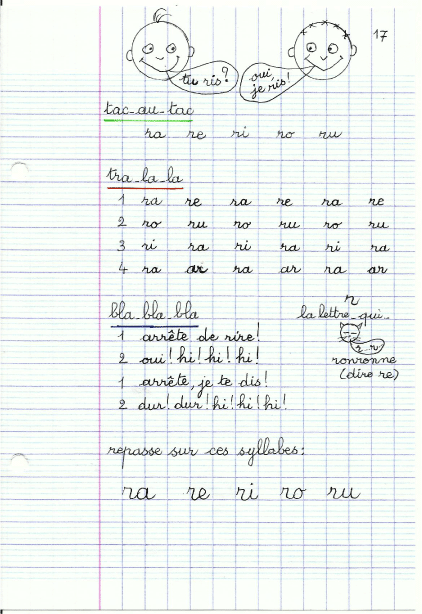 17
tu ris?
oui,
je ris!
tac-au-tac
ra re ri ro ru
tra-la-la
1 ra re ra re ra re
2 ro ru ro ru ro ru
3 ri ra ri ra ri ra
4 ra ar ra ar ra ar
bla-bla-bla
1 arrête de rire!
2 oui! hi! hi! hi!
1 arrête, je te dis!
2 dur! dur! hi! hi! hi!
r
la lettre qui
r r
ronronne
(dire re)
repasse sur ces syllabes:
ra re ri ro ru